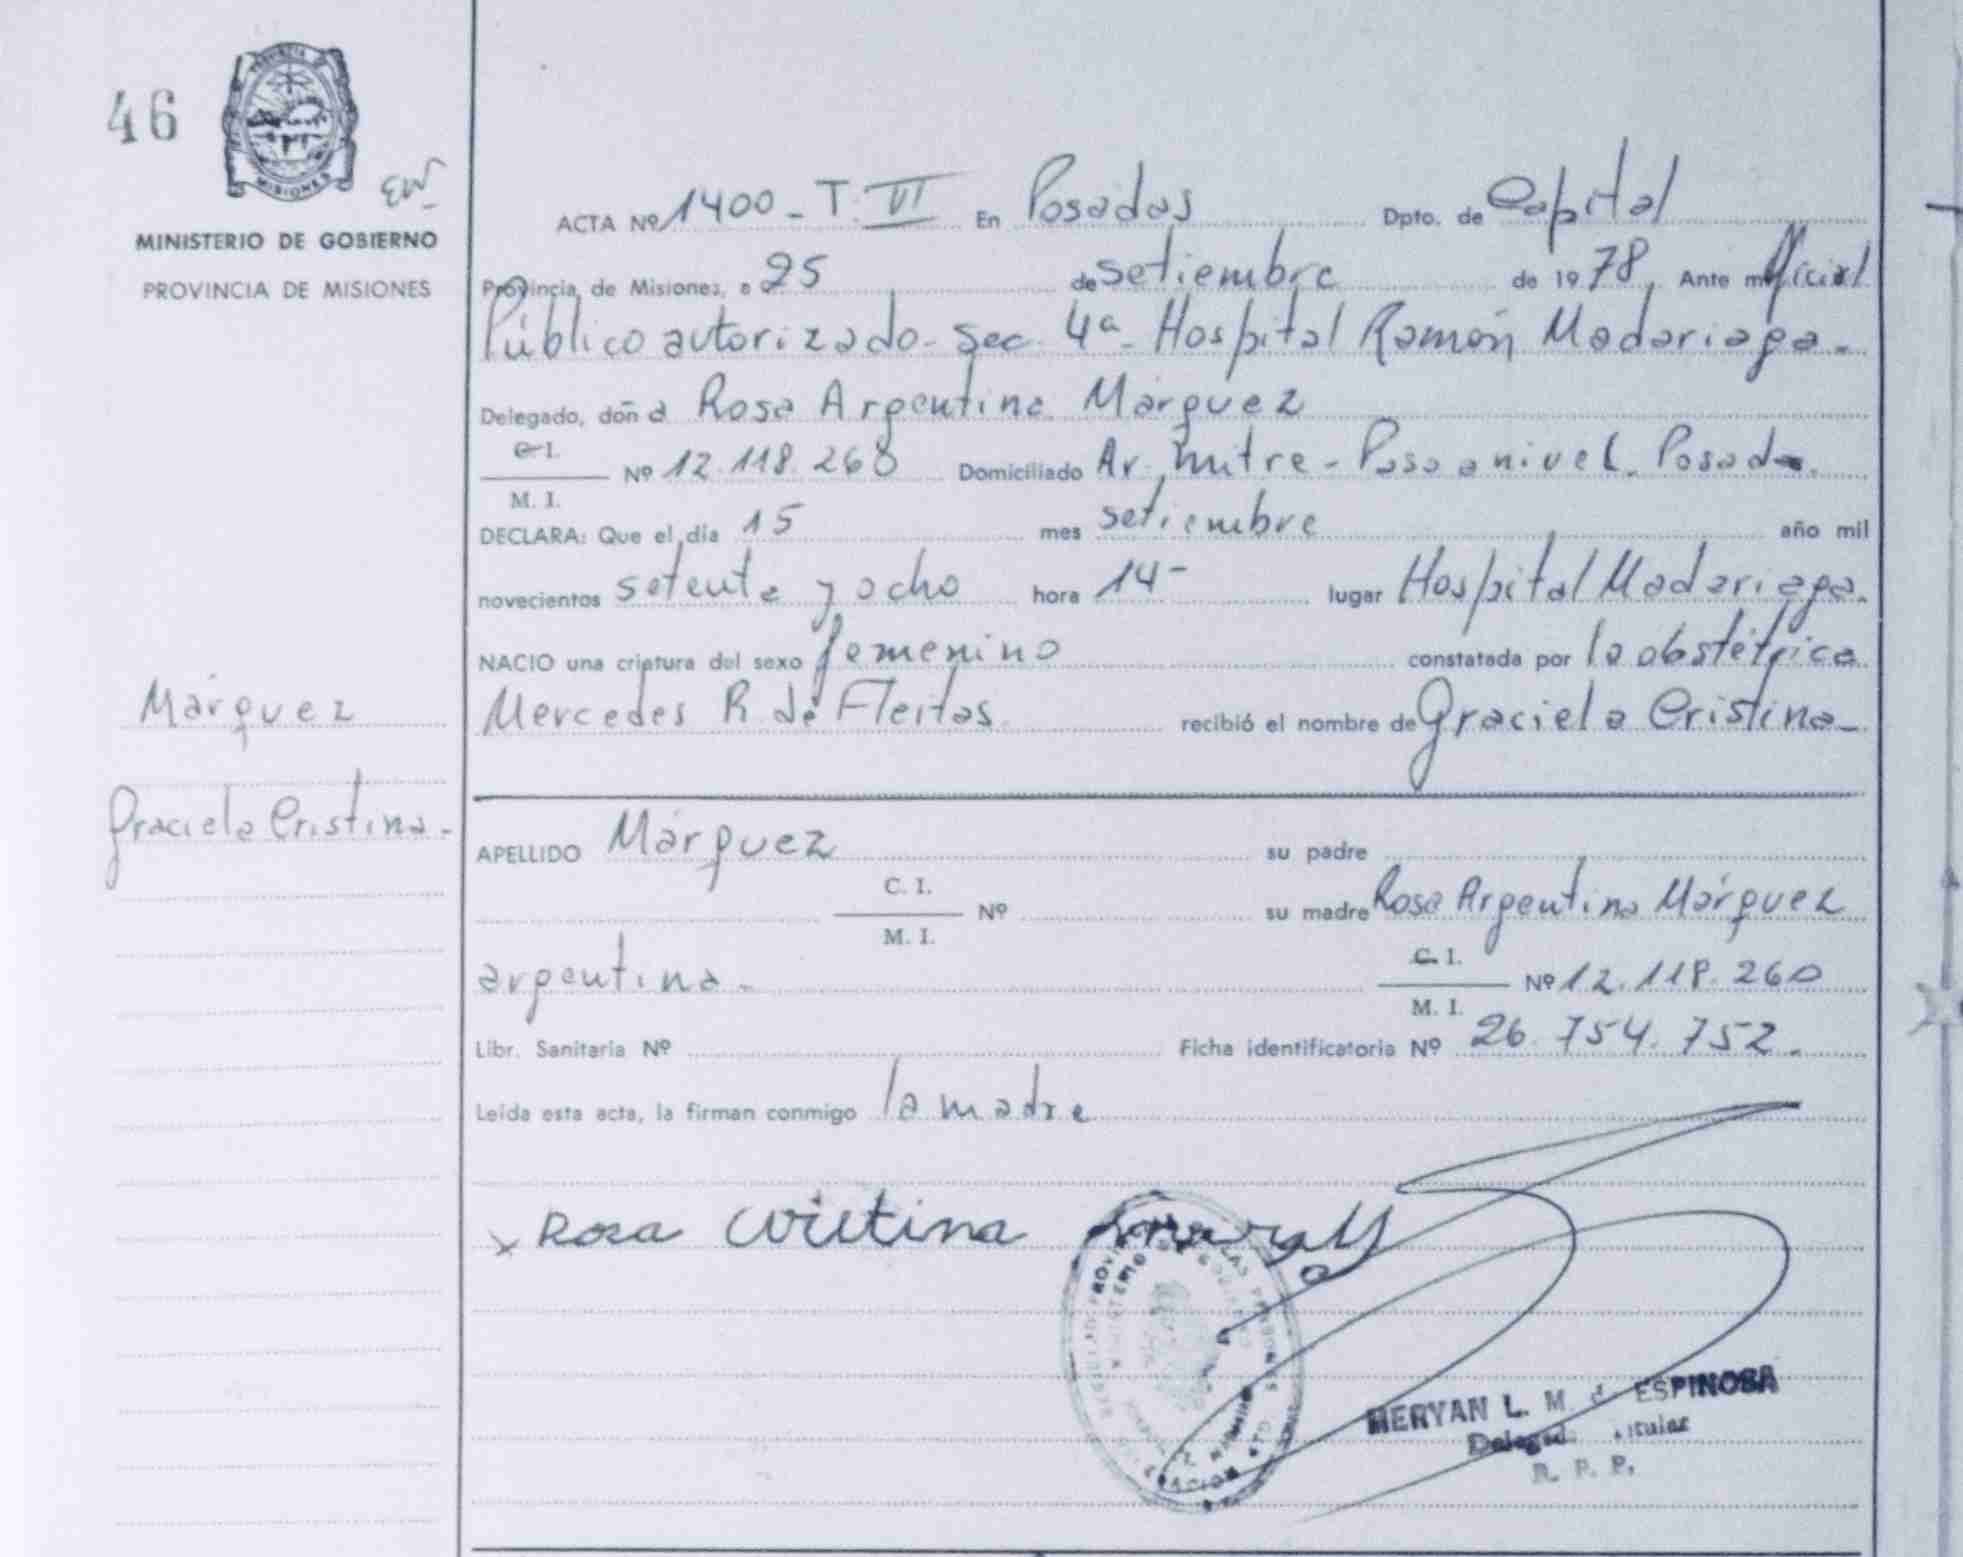 46
MISIONES
MINISTERIO DE GOBIERNO
PROVINCIA DE MISIONES
Márquez
Graciela Cristina.
ACTA Nº 1400 - T. VI En Posadas Dpto. de Capital
Provincia de Misiones, a 25 de setiembre de 1978, Ante mi Oficial
Público autorizado - Sec. 4ª - Hospital Ramón Madariaga.
Delegado, doña Rosa Argentina Márquez
C. I.
M. I.
Nº 12.118.260 Domiciliado Av. Mitre - Paso a nivel. Posadas.
DECLARA: Que el día 15 mes setiembre año mil
novecientos setenta y ocho hora 14- lugar Hospital Madariaga.
NACIO una criatura del sexo femenino constatada por la obstétrica
Mercedes R. de Fleitas recibió el nombre de Graciela Cristina -
APELLIDO Márquez su padre
C. I.
M. I.
Nº su madre Rosa Argentina Márquez
argentina - C. I.
M. I.
Nº 12.118.260
Libr. Sanitaria Nº Ficha identificatoria Nº 26.754.752.
Leída esta acta, la firman conmigo la madre
x Rosa
MERYAN L. M. d ESPINOSA
R. P. P.